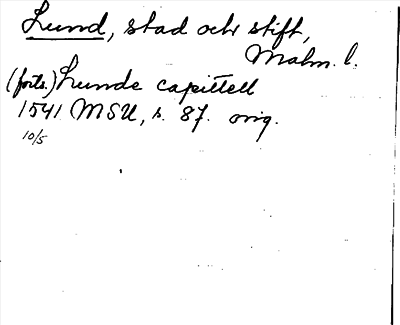 Lund, stad och stift,
Malm. l.
(forts.) Lunde capittell
1541 MSU, s. 87. orig.
10/5